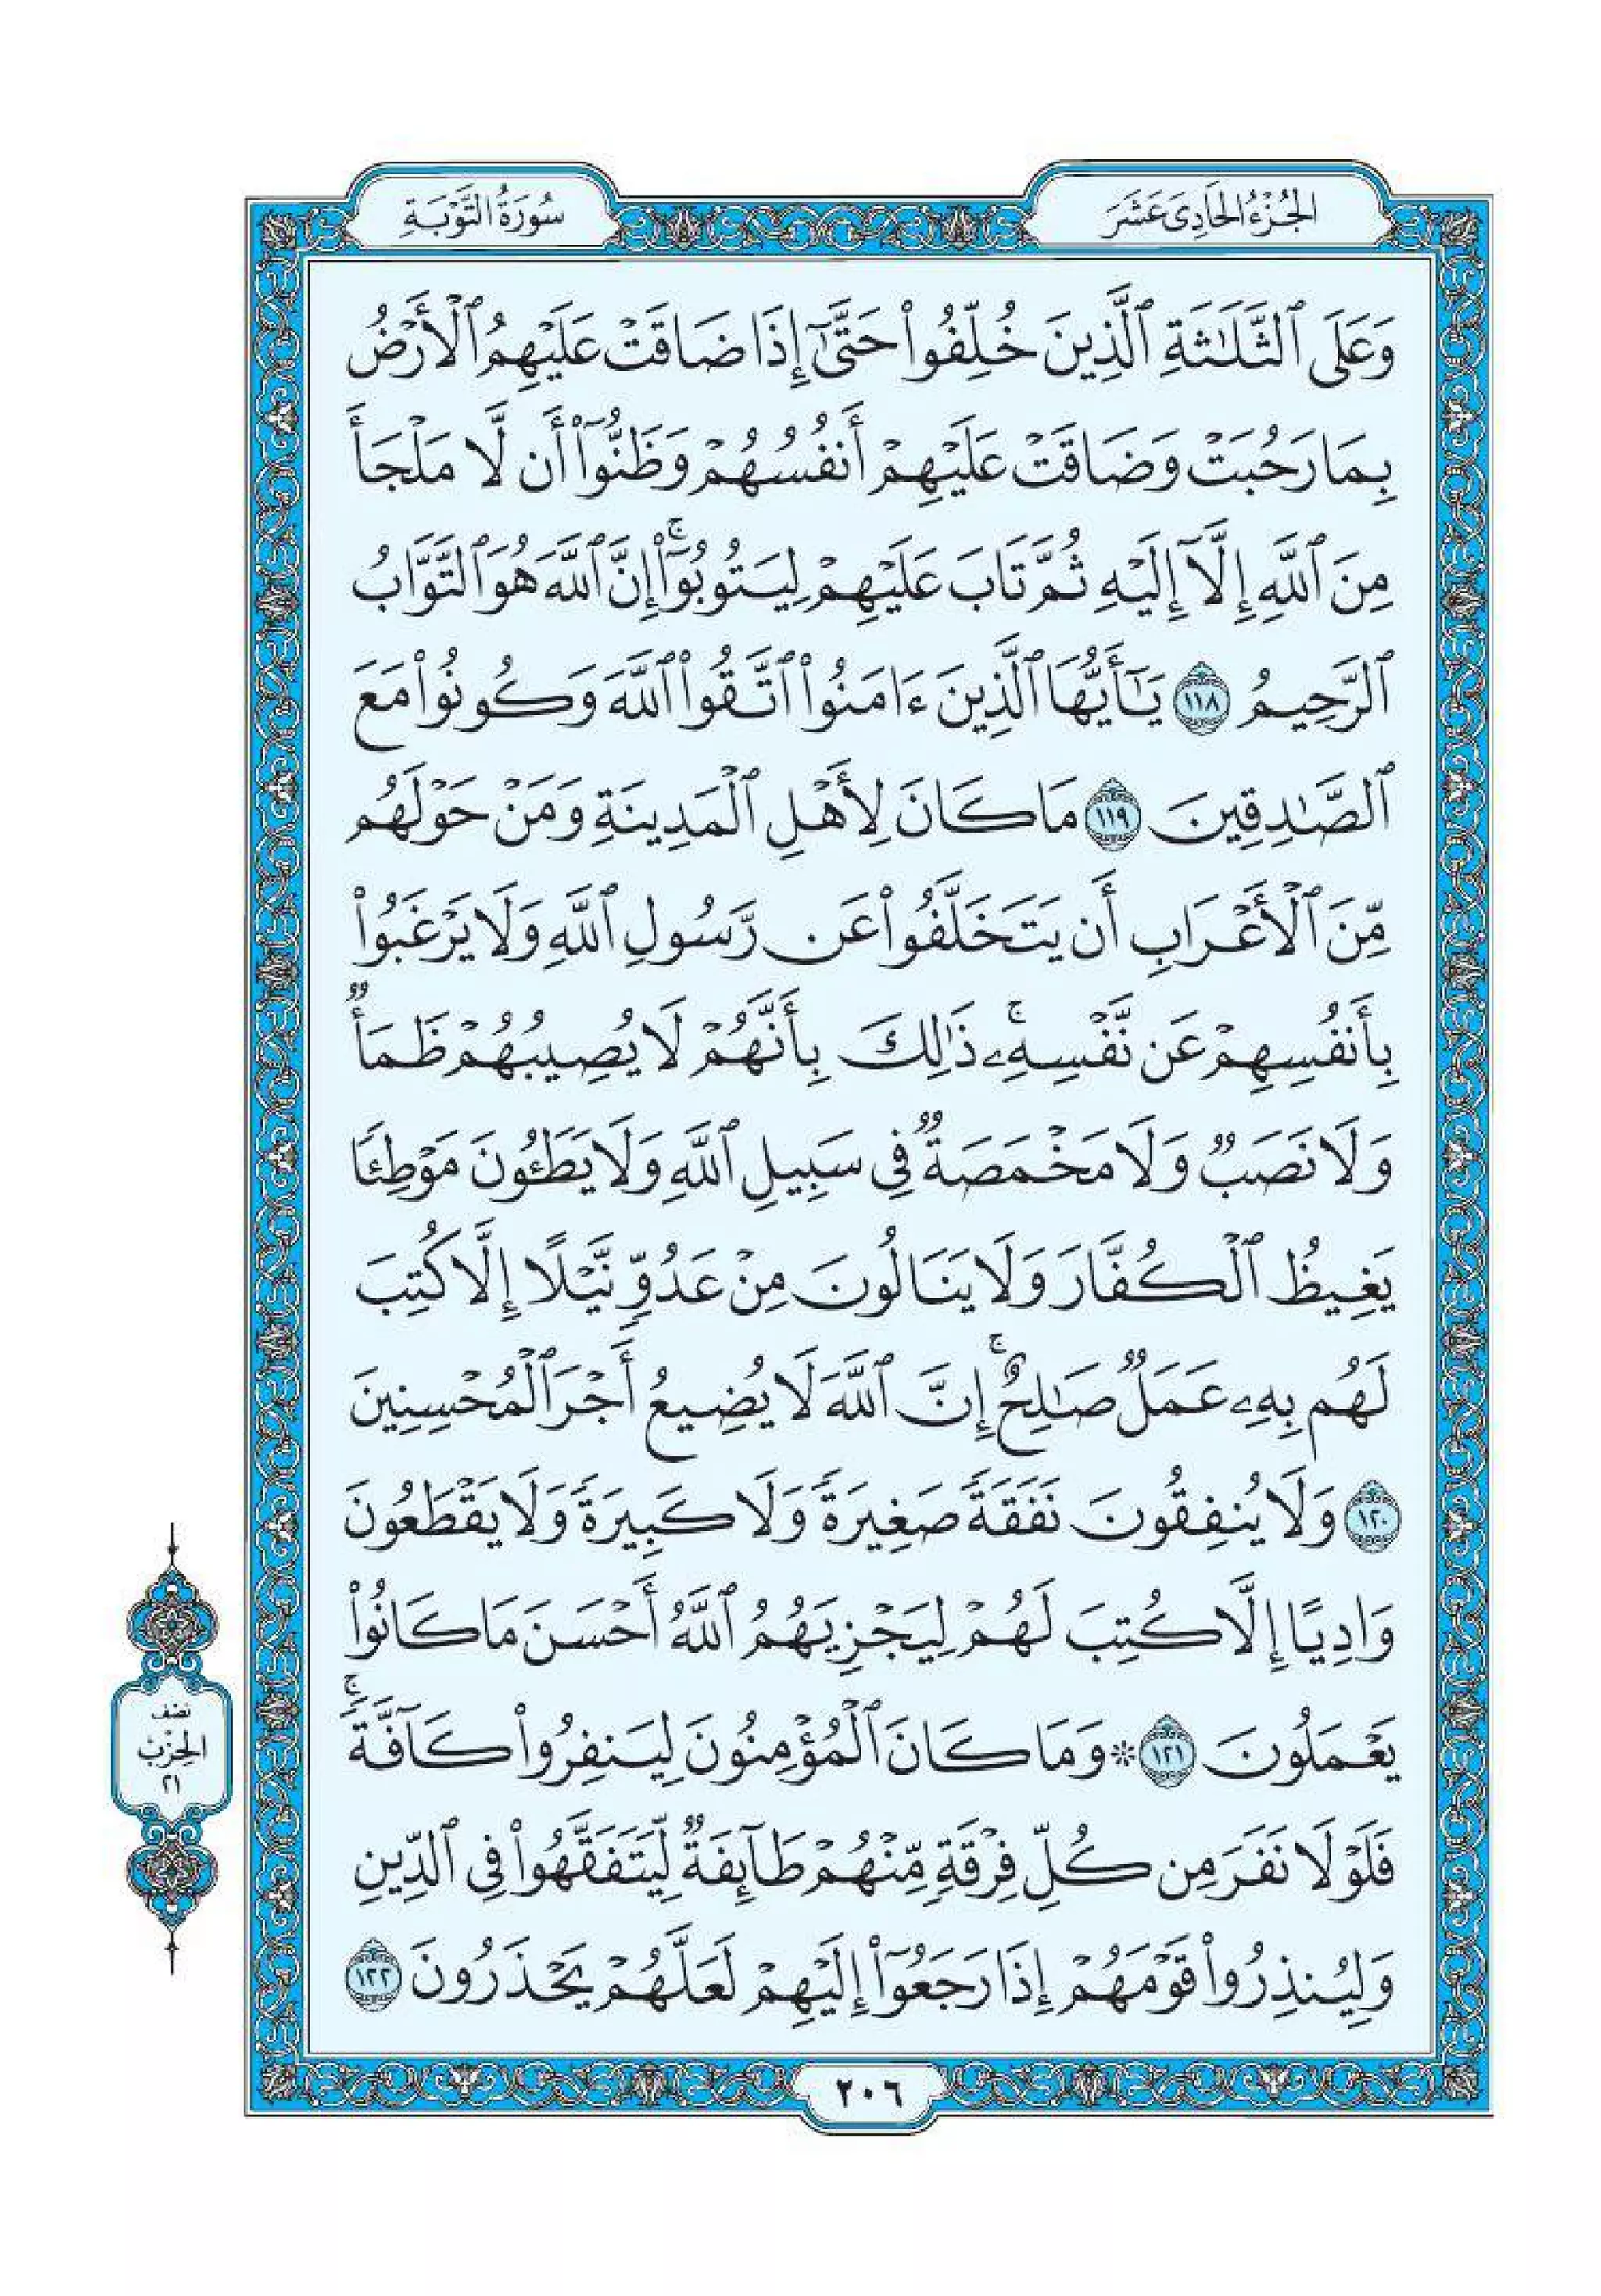 الجُزْءُ الحَادِىَ عَشَرَ
سُورَةُ التَّوْبَةِ
وَعَلَى ٱلثَّلَـٰثَةِ ٱلَّذِينَ خُلِّفُوا۟ حَتَّىٰٓ إِذَا ضَاقَتْ عَلَيْهِمُ ٱلْأَرْضُ
بِمَا رَحُبَتْ وَضَاقَتْ عَلَيْهِمْ أَنفُسُهُمْ وَظَنُّوٓا۟ أَن لَّا مَلْجَأَ
مِنَ ٱللَّهِ إِلَّآ إِلَيْهِ ثُمَّ تَابَ عَلَيْهِمْ لِيَتُوبُوٓا۟ۚ إِنَّ ٱللَّهَ هُوَ ٱلتَّوَّابُ
ٱلرَّحِيمُ ١١٨ يَـٰٓأَيُّهَا ٱلَّذِينَ ءَامَنُوا۟ ٱتَّقُوا۟ ٱللَّهَ وَكُونُوا۟ مَعَ
ٱلصَّـٰدِقِينَ ١١٩ مَا كَانَ لِأَهْلِ ٱلْمَدِينَةِ وَمَنْ حَوْلَهُم
مِّنَ ٱلْأَعْرَابِ أَن يَتَخَلَّفُوا۟ عَن رَّسُولِ ٱللَّهِ وَلَا يَرْغَبُوا۟
بِأَنفُسِهِمْ عَن نَّفْسِهِۦۚ ذَٰلِكَ بِأَنَّهُمْ لَا يُصِيبُهُمْ ظَمَأٌ
وَلَا نَصَبٌ وَلَا مَخْمَصَةٌ فِى سَبِيلِ ٱللَّهِ وَلَا يَطَـُٔونَ مَوْطِئًا
يَغِيظُ ٱلْكُفَّارَ وَلَا يَنَالُونَ مِنْ عَدُوٍّ نَّيْلًا إِلَّا كُتِبَ
لَهُم بِهِۦ عَمَلٌ صَـٰلِحٌۚ إِنَّ ٱللَّهَ لَا يُضِيعُ أَجْرَ ٱلْمُحْسِنِينَ
١٢٠ وَلَا يُنفِقُونَ نَفَقَةً صَغِيرَةً وَلَا كَبِيرَةً وَلَا يَقْطَعُونَ
وَادِيًا إِلَّا كُتِبَ لَهُمْ لِيَجْزِيَهُمُ ٱللَّهُ أَحْسَنَ مَا كَانُوا۟
يَعْمَلُونَ ١٢١ ۞ وَمَا كَانَ ٱلْمُؤْمِنُونَ لِيَنفِرُوا۟ كَآفَّةًۚ
فَلَوْلَا نَفَرَ مِن كُلِّ فِرْقَةٍ مِّنْهُمْ طَآئِفَةٌ لِّيَتَفَقَّهُوا۟ فِى ٱلدِّينِ
وَلِيُنذِرُوا۟ قَوْمَهُمْ إِذَا رَجَعُوٓا۟ إِلَيْهِمْ لَعَلَّهُمْ يَحْذَرُونَ ١٢٢
نصْف
الحِزْب
٢١
٢٠٦